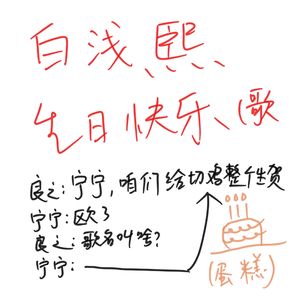 白浅熙
生日快乐、(歌
良之:宁宁,咱们给切鸡整个生贺
宁宁:欧了
良之:歌名叫啥?
宁宁:
(蛋糕)